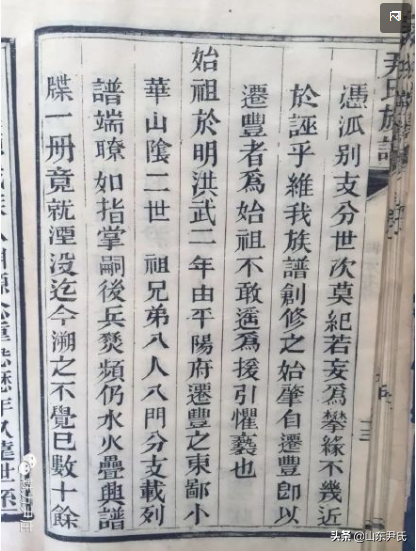 尹氏族譜
三
憑泒别支分世次莫紀若妄爲攀緣不幾近
於誣乎維我族譜創修之始肇自遷豐卽以
遷豐者爲始祖不敢遥爲援引懼褻也
始祖於明洪武二年由平陽府遷豐之東鄙小
華山陰二世 祖兄弟八人八門分支載列
譜端瞭如指掌嗣後兵燹頻仍水火疊興譜
牒一册竟就湮没迄今溯之不覺已數十餘
年久遠世系
头条 @山东尹氏